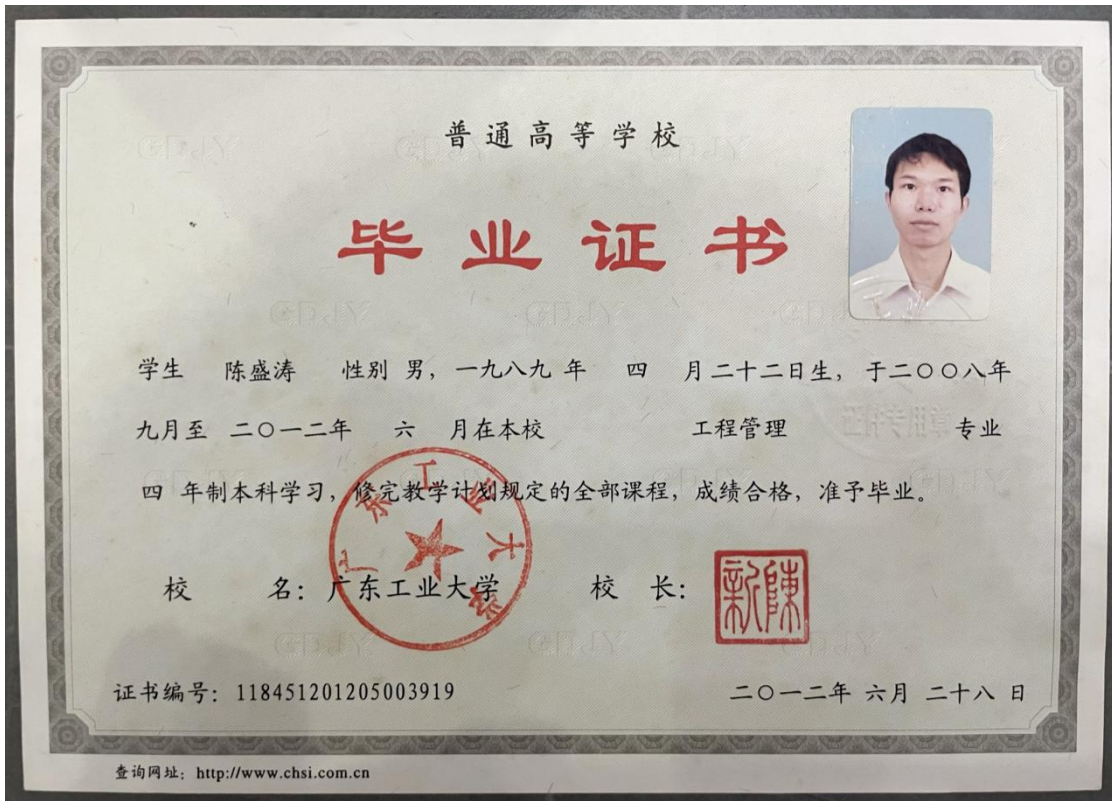 普通高等学校
毕业证书
学生 陈盛涛 性别 男，一九八九 年 四 月二十二日生，于二〇〇八年
九月至 二〇一二年 六 月在本校 工程管理 专业
四 年制本科学习，修完教学计划规定的全部课程，成绩合格，准予毕业。
广东工业大学
校 名：广东工业大学 校 长：
陈新
证书编号：118451201205003919 二〇一二年 六月 二十八 日
查询网址：http://www.chsi.com.cn